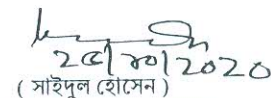 ২৫/১০/2020
( সাইদুল হোসেন )